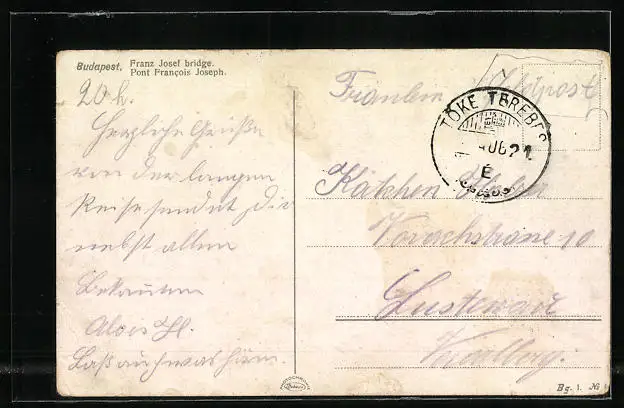 Budapest, Franz Josef bridge.
Pont François Joseph.
20 h.
Herzliche Grüße
von der langen
Reise sendet dir
nebst allen
Bekannten
Alois H.
Laß auch was hören.
Fräulein Feldpost
TŐKE TEREBES
Käthchen
10
Lustenau
Vorarlberg.
Bg. 1. №